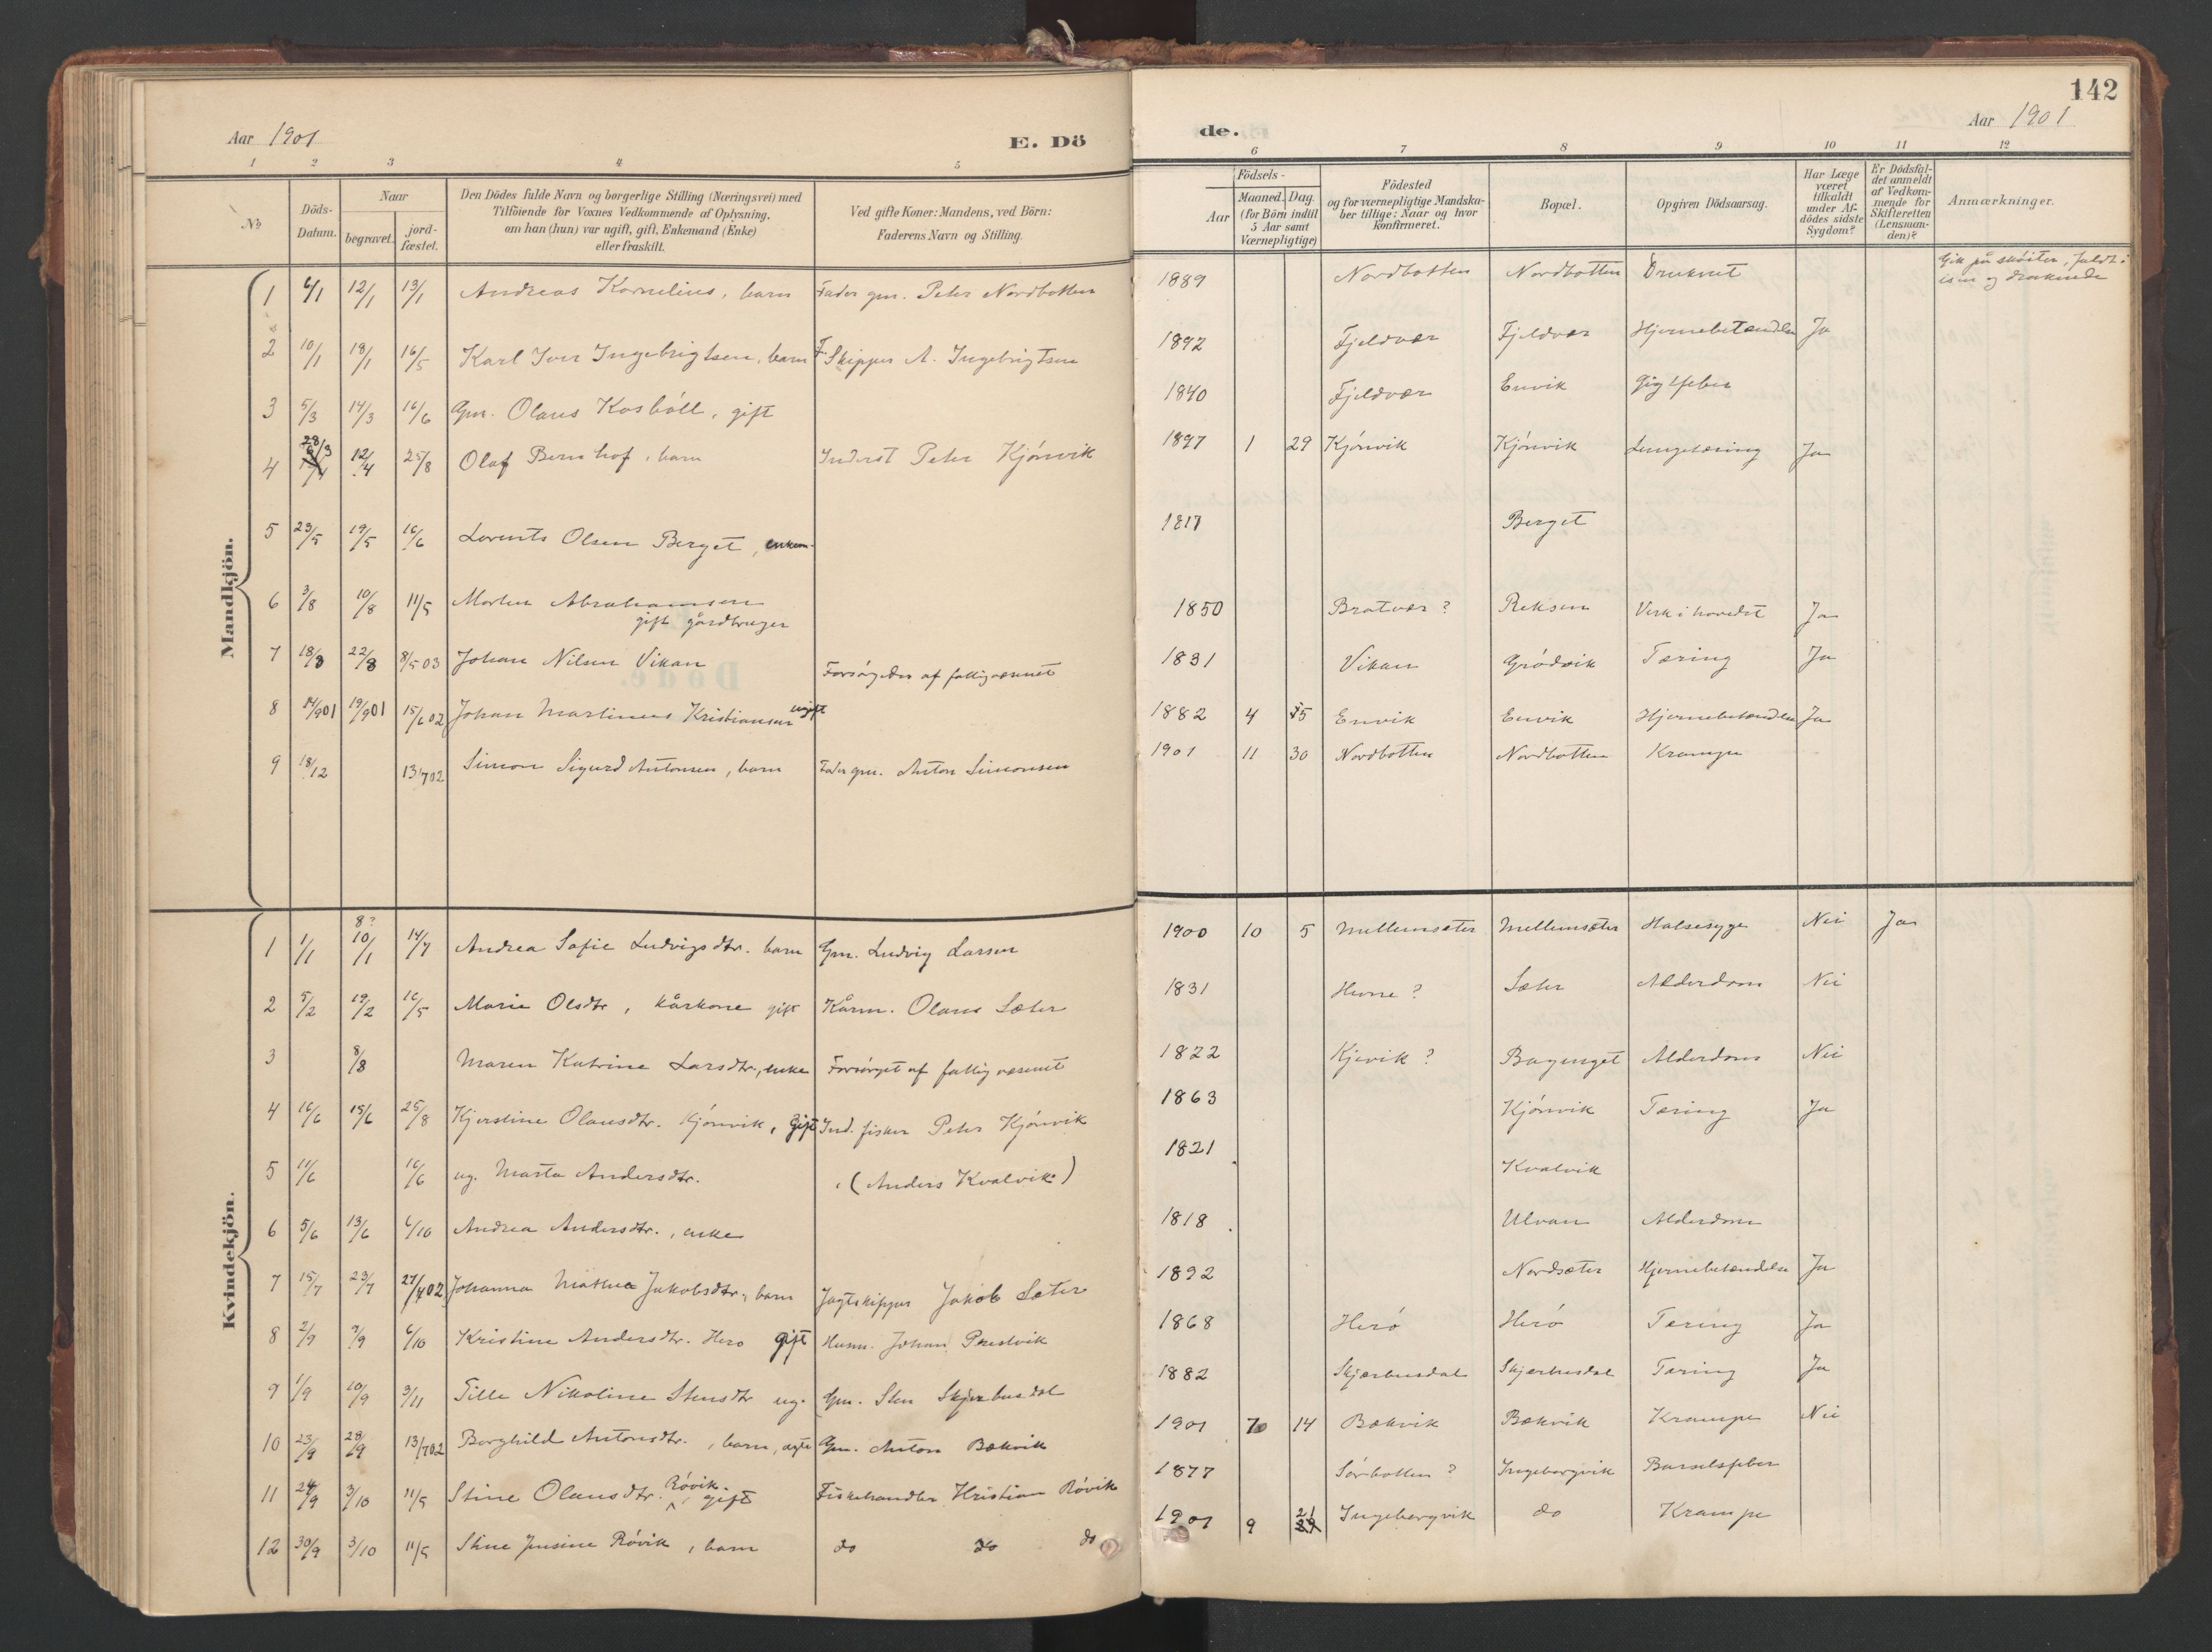 142
Aar 1901 E. Dö
de. Aar 1901
1 2 3 4 5 6 7 8 9 10 11 12
No
Döds-Datum.
Naar
begravet.
jord-fæstet.
Den Dödes fulde Navn og borgerlige Stilling (Næringsvei) med
Tilföiende for Voxnes Vedkommende af Oplysning,
om han (hun) var ugift, gift, Enkemand (Enke)
eller fraskilt.
Ved gifte Koner: Mandens, ved Börn:
Faderens Navn og Stilling.
Födsels-
Aar
Maaned. Dag.
(for Börn indtil
5 Aar samt
Værnepligtige)
Födested
og for værnepligtige Mandska-
ber tillige: Naar og hvor
konfirmeret.
Bopæl.
Opgiven Dödsaarsag.
Har Læge
været
tilkaldt
under Af-
dödes sidste
Sygdom?
Er Dödsfal-
det anmeldt
af Vedkom-
mende for
Skifteretten
(Lensman-
den)?
Anmærkninger.
Mandkjön.
1 6/1 12/1 13/1 Andreas Kornelius, barn Fader gm. Peter Nordbotten 1889 Nordbotten Nordbotten Druknet Gik på skøiter, faldt i
isen og druknede
2 10/1 18/1 16/5 Karl Iver Ingebrigtsen, barn F. Skipper A. Ingebrigtsen 1892 Fjeldvær Fjeldvær Hjernebetændelse Ja
3 5/3 14/3 16/6 Gm. Olaus Kosböll, gift 1840 Fjeldvær Envik Gigtfeber
4 28/3 12/4 25/8 Olaf Bernhof, barn Inderst Peter Kjönvik 1897 1 29 Kjönvik Kjönvik Lungetæring Ja
5 23/5 19/5 16/6 Lorents Olsen Berget, enkem. 1817 Berget
6 3/8 10/8 11/5 Morten Abrahamsen
gift gårdbruger 1850 Bratvær? Reksen Verk i hovedet Ja
7 18/8 22/8 8/5 03 Johan Nilsen Vikan Forsörgedes af fattigvæsenet 1831 Vikan Grödvik Tæring Ja
8 14/9 01 19/9 01 15/6 02 Johan Martinus Kristiansen ugift 1882 4 5 Envik Envik Hjernebetændelse Ja
9 18/12 13/7 02 Simon Sigurd Antonsen, barn Fader gm. Anton Simonsen 1901 11 30 Nordbotten Nordbotten Krampe
Kvindekjön.
1 1/1 8? 10/1 14/7 Andrea Sofie Ludvigsdtr. barn Gm. Ludvig Larsen 1900 10 5 Mellemsæter Mellemsæter Halsesyge Nei Ja
2 5/2 19/2 16/5 Marie Olsdtr, kårkone gift Kårm. Olaus Sæter 1831 Hevne? Sæter Alderdom Nei
3 8/8 Maren Katrine Larsdtr., enke Forsörget af fattigvæsenet 1822 Kjevik? Alderdom Nei
4 16/6 15/6 25/8 Kjerstine Olausdtr. Kjönvik, gift Ind. fisker Peter Kjönvik 1863 Kjönvik Tæring Ja
5 11/6 16/6 ug. Marta Andersdtr. (Anders Kvalvik) 1821 Kvalvik
6 5/6 13/6 6/10 Andrea Andersdtr., enke 1818 Ulvan Alderdom
7 15/7 23/7 27/4 02 Johanna Mathea Jakobsdtr., barn Jagtskipper Jakob Sæter 1892 Nordsæter Hjernebetændelse Ja
8 2/9 9/9 6/10 Kristine Andersdtr. Herö gift Husm. Johan Prestvik 1868 Herö Herö Tæring Ja
9 1/9 10/9 3/11 Tille Nikoline Stensdtr ug. Gm. Sten Skjærbusdal 1882 Skjærbusdal Skjærbusdal Tæring Ja
10 23/9 28/9 13/7 02 Borghild Antonsdtr., barn, ægte Gm. Anton Bækvik 1901 7 14 Bækvik Bækvik Krampe Nei
11 24/9 3/10 11/5 Stine Olausdtr. Rövik. gift Fiskehandler Kristian Rövik 1877 Sörbotten? Ingebergvik Barselsfeber
12 30/9 3/10 11/5 Stine Jensine Rövik, barn do do do 1901 9 21 Ingebergvik do Krampe